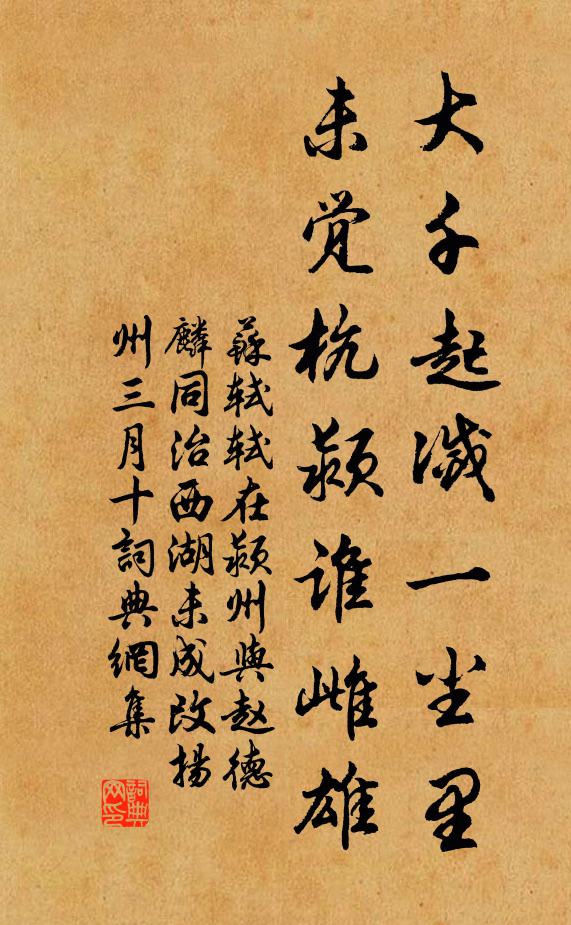 大千起滅一尘里
未觉杭颍谁雌雄
蘇轼轼在颍州與赵德
麟同治西湖未成改揚
州三月十詞典網集
詞典
网印